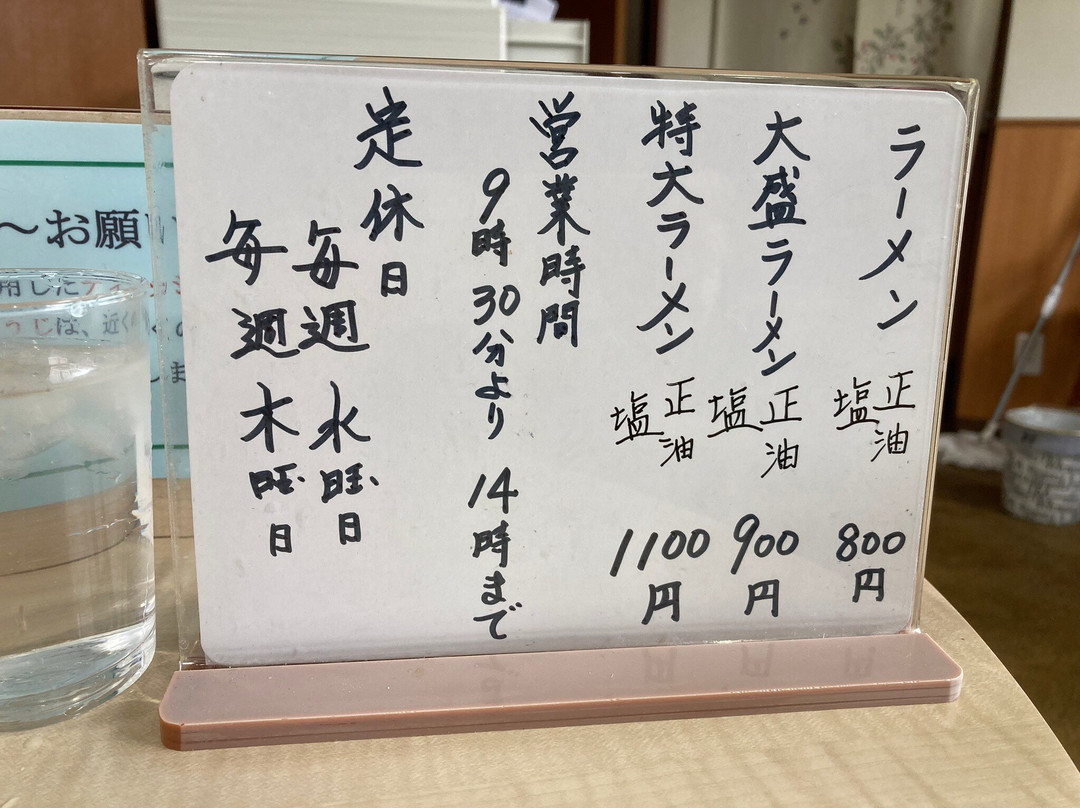 ラーメン 正油 塩 800円
大盛ラーメン 正油 塩 900円
特大ラーメン 正油 塩 1100円
営業時間
9時30分より 14時まで
定休日
毎週水曜日
毎週木曜日
～お願い